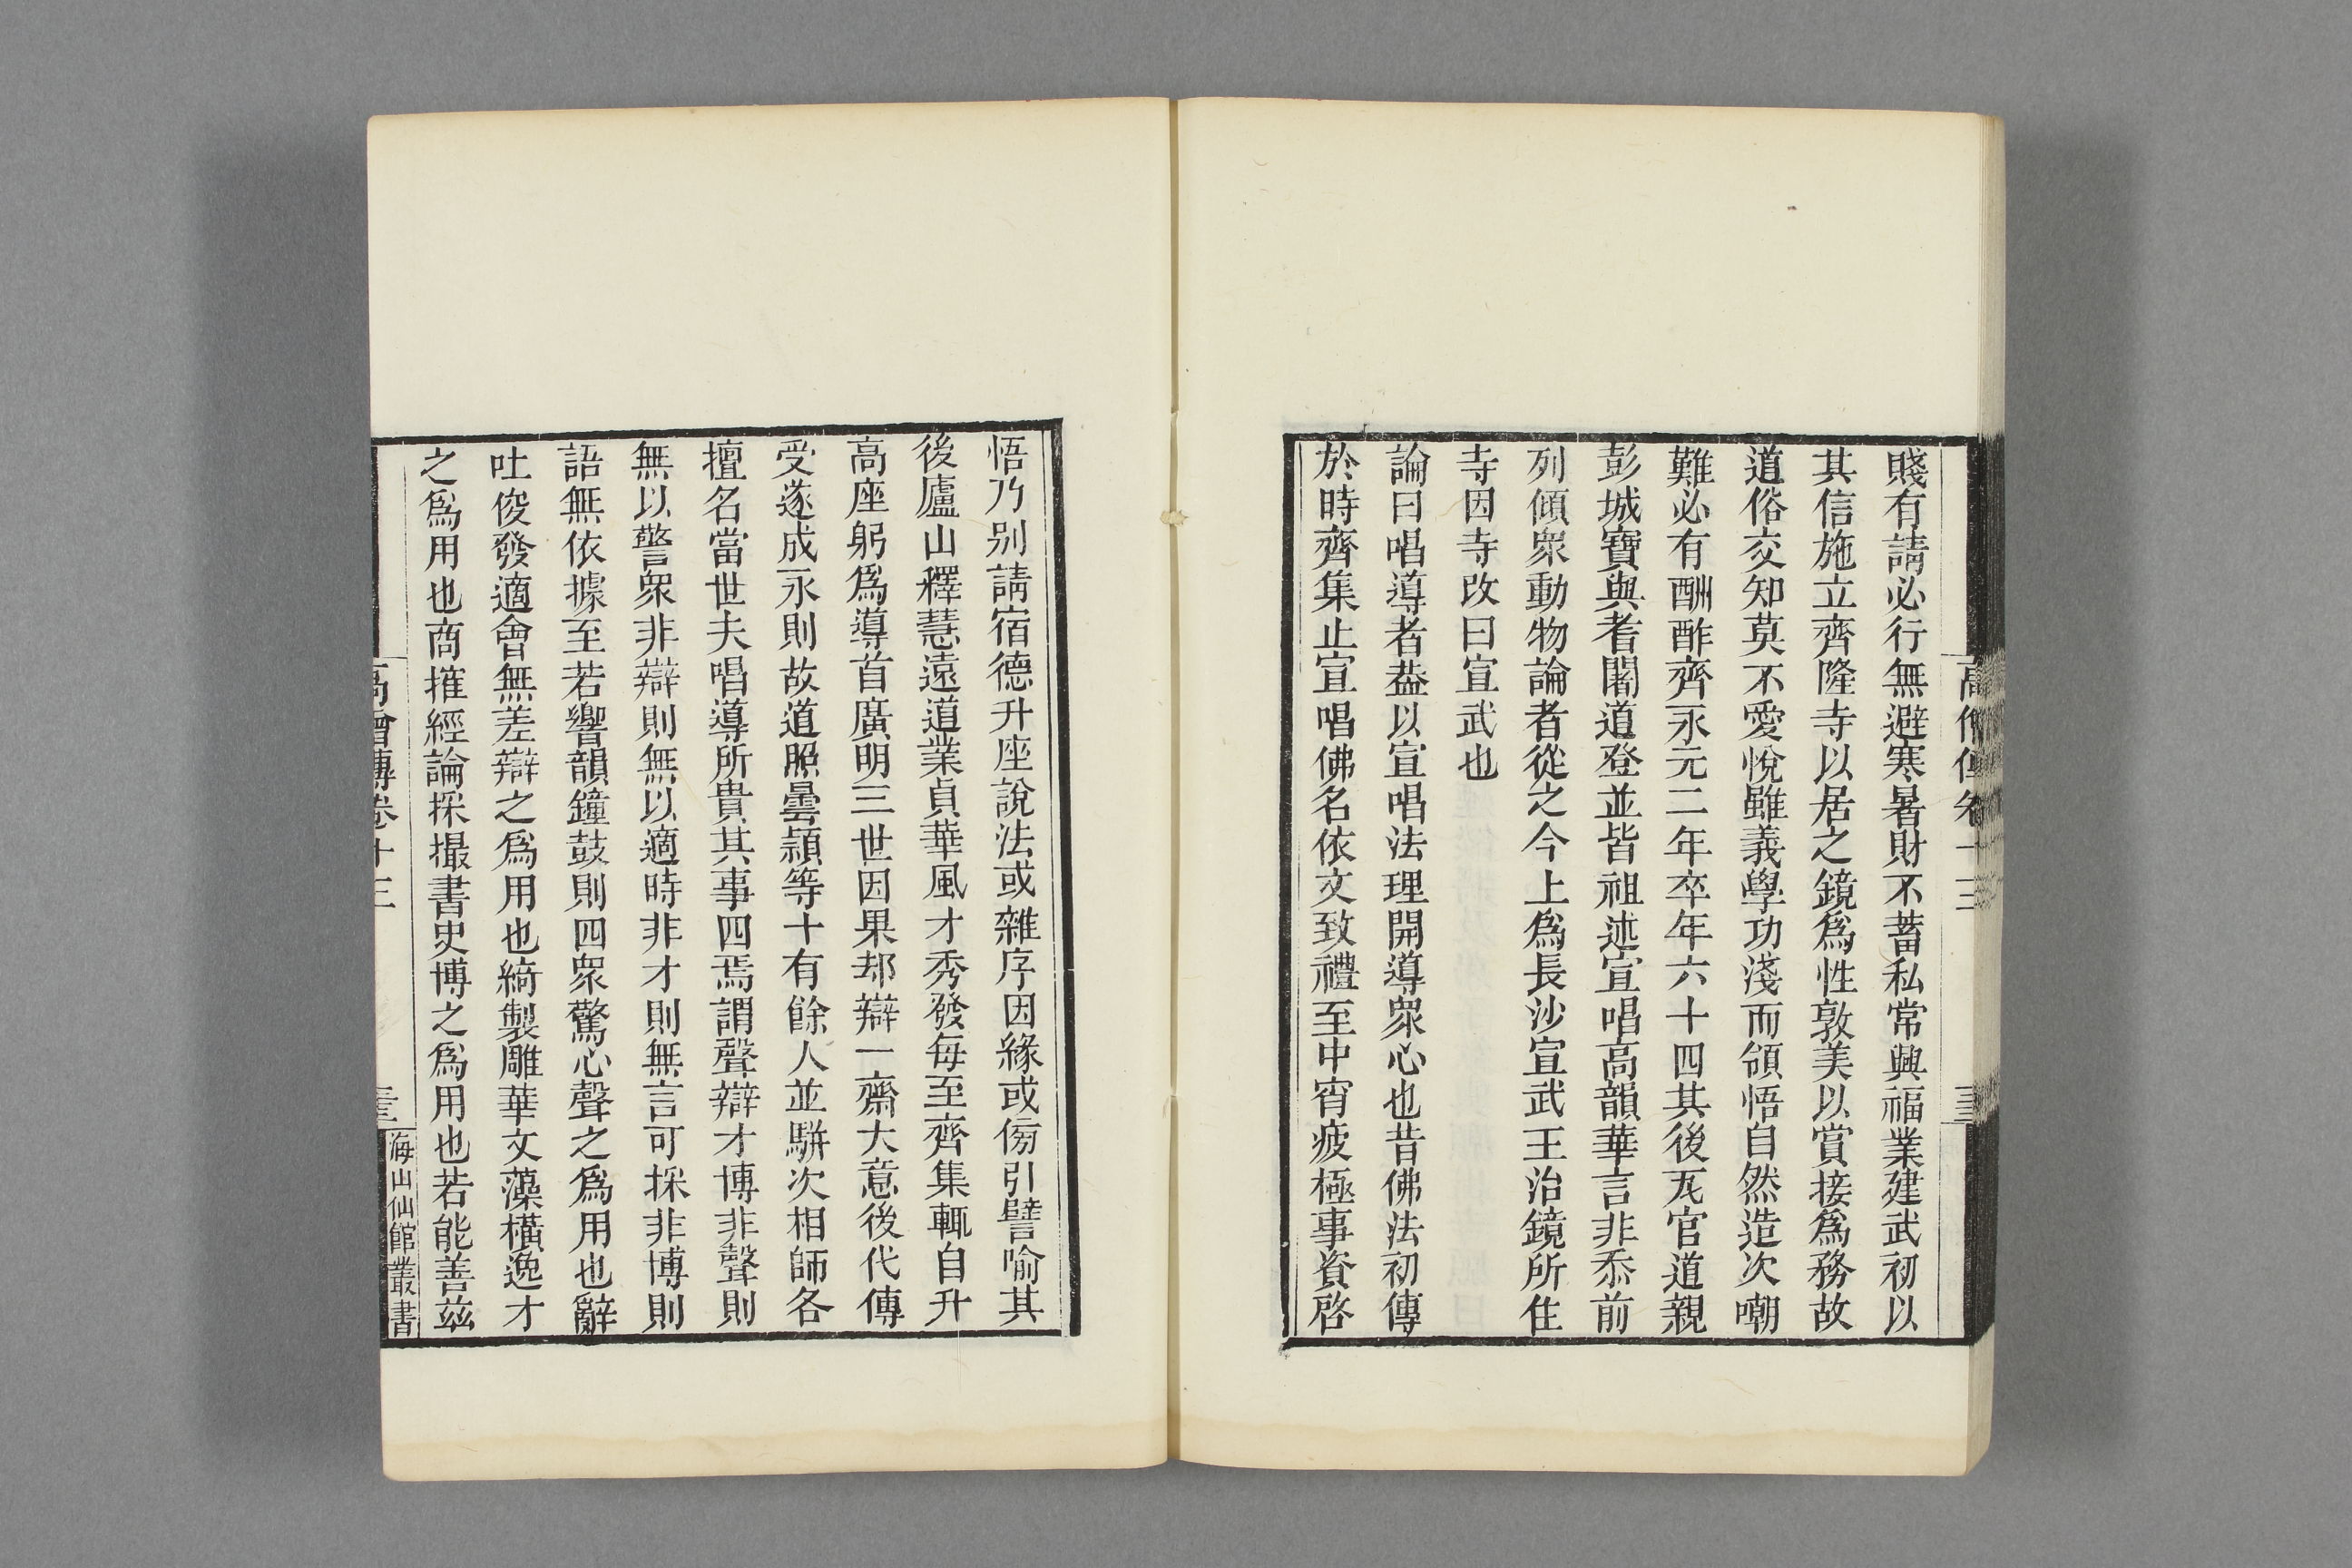 賤有請必行無避寒暑財不蓄私常興福業建武初以
其信施立齊隆寺以居之鏡爲性敦美以賞接爲務故
道俗交知莫不愛悅雖義學功淺而領悟自然造次嘲
難必有酬酢齊永元二年卒年六十四其後瓦官道親
彭城寶與耆闍道登並皆祖述宣唱高韻華言非忝前
列傾衆動物論者從之今上爲長沙宣武王治鏡所住
寺因寺改曰宣武也
論曰唱導者葢以宣唱法理開導衆心也昔佛法初傳
於時齊集止宣唱佛名依文致禮至中宵疲極事資啓
悟乃别請宿德升座說法或雜序因緣或傍引譬喻其
後廬山釋慧遠道業貞華風才秀發每至齊集輒自升
高座躬爲導首廣明三世因果却辯一齋大意後代傳
受遂成永則故道照曇頴等十有餘人並駢次相師各
擅名當世夫唱導所貴其事四焉謂聲辯才博非聲則
無以警衆非辯則無以適時非才則無言可採非博則
語無依據至若響韻鐘鼓則四衆驚心聲之爲用也辭
吐俊發適會無差辯之爲用也綺製雕華文藻橫逸才
之爲用也商搉經論採撮書史博之爲用也若能善兹
高僧傳卷十三
海山仙館叢書